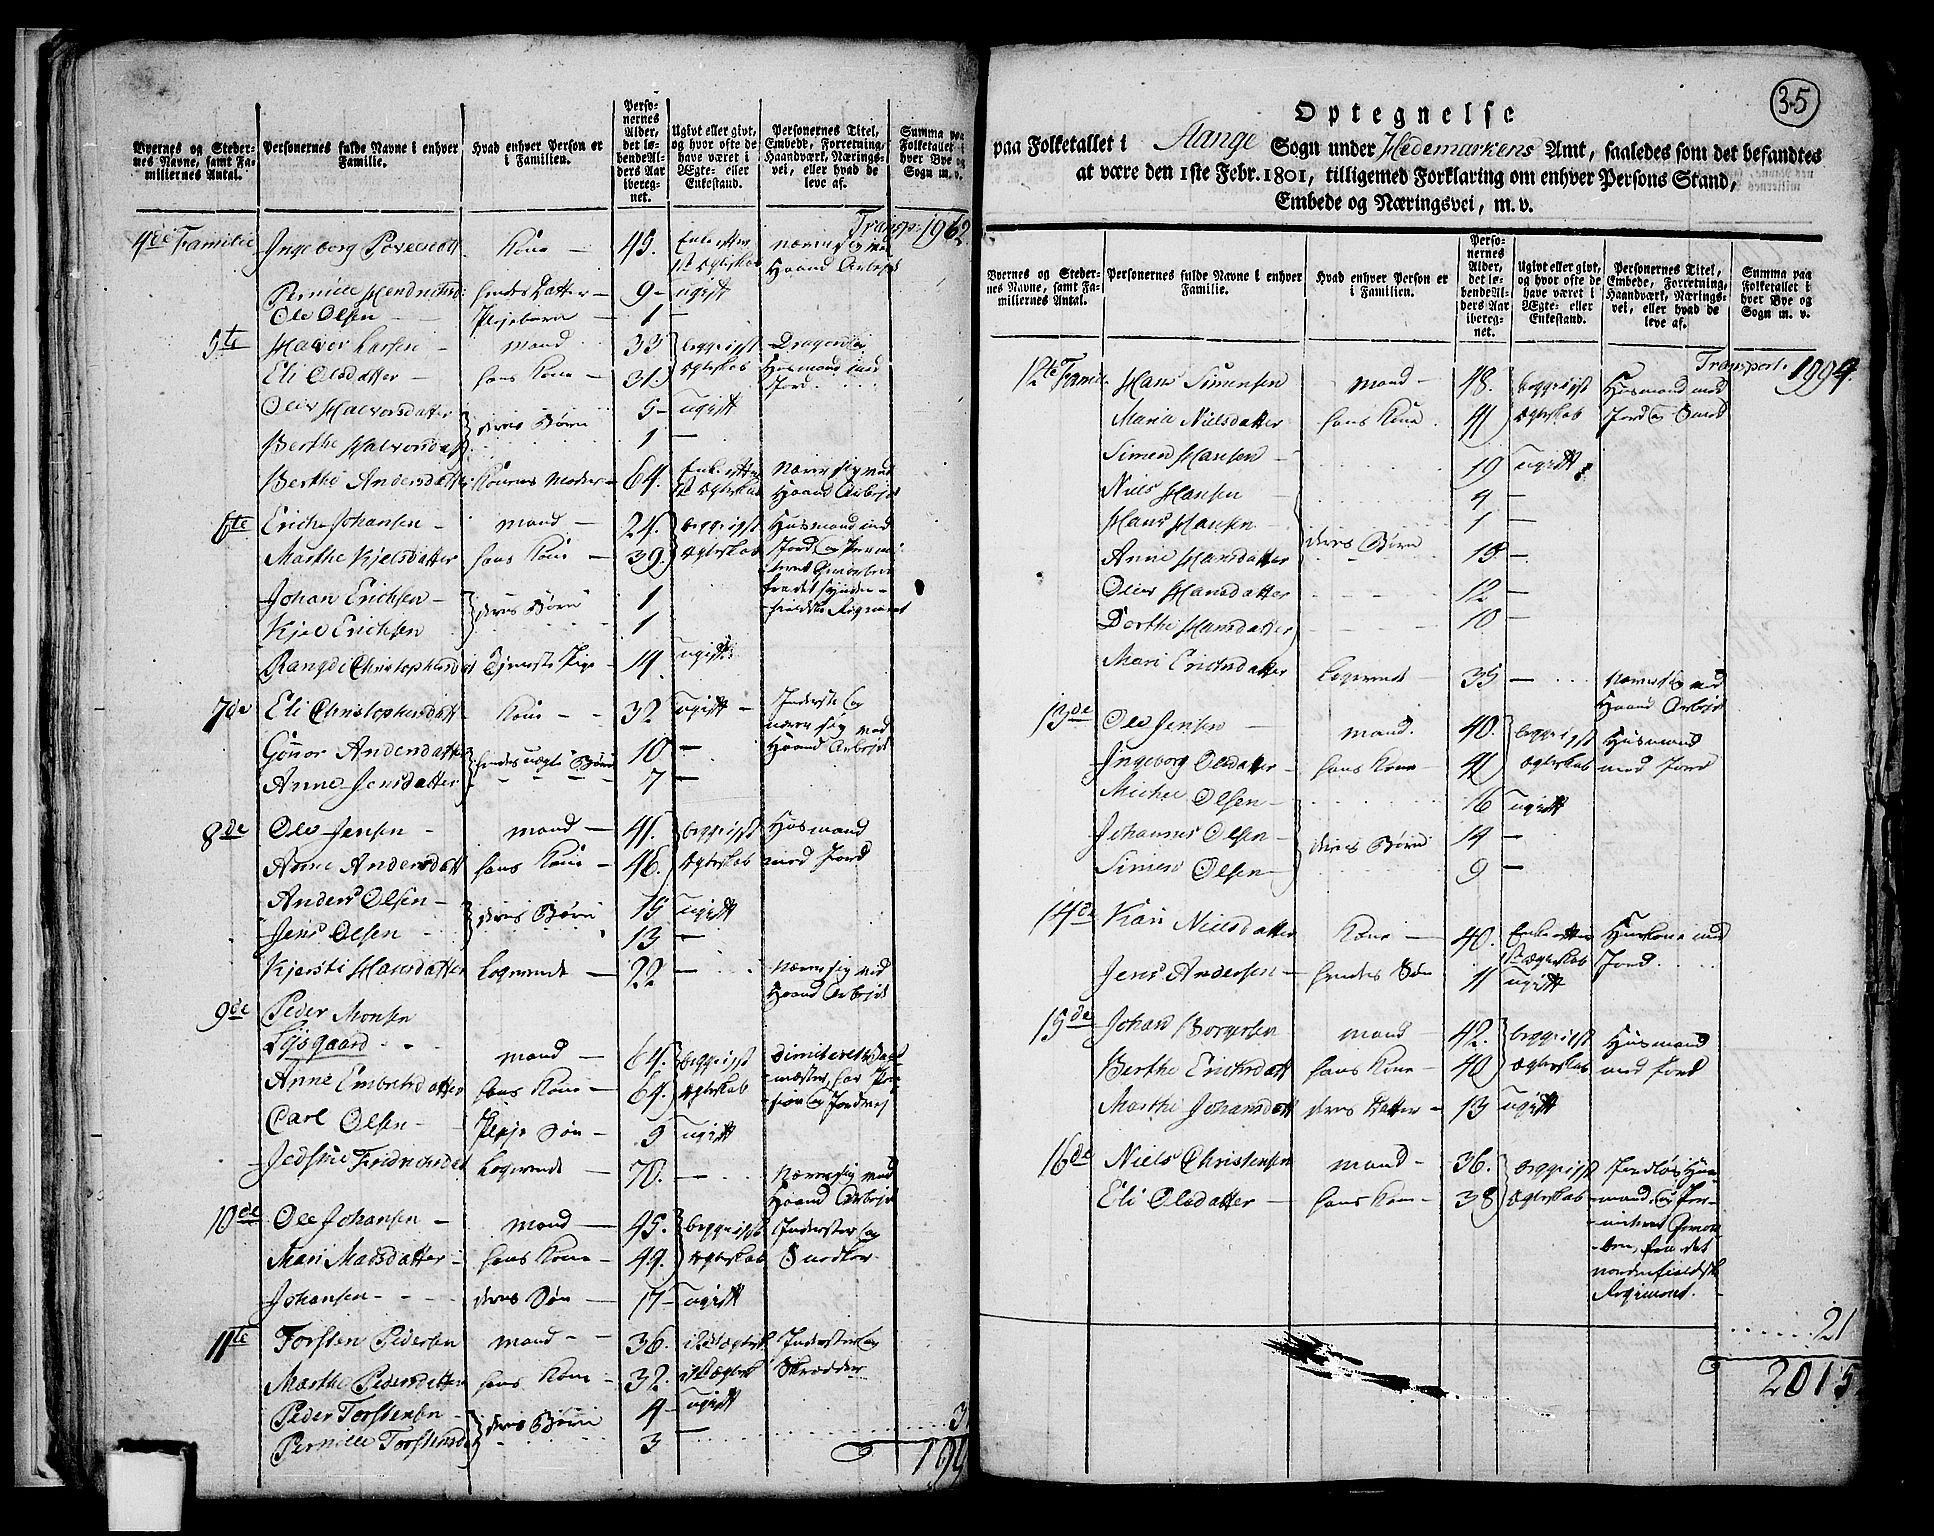 Byernes og Stedernes Navne, samt Familiernes Antal.
Personernes fulde Navne i enhver Familie.
Hvad enhver Person er i Familien.
Personernes Alder, det løbende Alders Aar iberegnet.
Ugivt eller givt, og hvor ofte de have været i Ægte- eller Enkestand.
Personernes Titel, Embede, Forretning, Haandværk, Næringsvei, eller hvad de leve af.
Summa paa Folketallet i hver Bye og Sogn m. v.
Transp. 1962.
4de Familie Ingeborg Kone 45. Enke efter 1ste Ægteskab nærer sig med Haand Arbejd
Pernille hendes Datter 9 ugift
Ole Olsen Plejebarn 1
5te Halvor Larsen mand 33 begge i 1ste Ægteskab Dragon og Husmand med Jord
Eli Olsdatter hans Kone 31.
Olea Halvorsdatter deres Børn 5 ugift
Berthe Halvorsdatt 1
Berthe Andersdatter Konens Moder 64. Enke efter 1st Ægteskab nærer sig med Haand Arbejd
6te Erich Johansen mand 24. begge i 1st Ægteskab Husmand med Jord og
Marthe Kjelsdatter hans Kone 39.
Johan Erichsen deres Børn 1
Kjel Erichsen 1
Rangdi Christophersdat Tjeneste Pige 19. ugift
7de Eli Christophersdatt Kone 32 ugift Inderste og nærer sig med Haand Arbejd
Gunor Andersdatter hendes uægte Børn 10
Anne Jensdatter 7
8de Ole Jensen mand 41. begge i 1st Ægteskab Husmand med Jord
Anne Andersdatt hans Kone 46.
Anders Olsen deres Børn 15 ugift
Jens Olsen 13
Kjersti Hansdatter Logerende 22 nærer sig med Haand Arbejd
9de Peder Monsen
Lysgaard mand 64. begge i 1st Ægteskab
Anne Embretsdatter hans Kone 64.
Carl Olsen Pleje Søn 9 ugift
Fridrichsdat Logerende 70. nærer sig med Haand Arbejd
10de Ole Johansen mand 45. begge i 1st Ægteskab Inderster og Snedker
Mari Matsdatter hans Kone 49.
Johansen deres Søn 17 ugift
11te Torsten Pedersen mand 36. Inderster og Skrædder
Marthe Pedersdatter hans Kone 32.
Peder Torstensen deres Børn 4 ugift
Pernille Torstensd 3
35
Optegnelse
paa Folketallet i Stange Sogn under Hedemarkens Amt, saaledes som det befandtes
at være den 1ste Febr. 1801, tilligemed Forklaring om enhver Persons Stand,
Embede og Næringsvei, m. v.
Byernes og Stedernes Navne, samt Familiernes Antal.
Personernes fulde Navne i enhver Familie.
Hvad enhver Person er i Familien.
Personernes Alder, det løbende Alders Aar iberegnet.
Ugivt eller givt, og hvor ofte de have været i Ægte- eller Enkestand.
Personernes Titel, Embede, Forretning, Haandværk, Næringsvei, eller hvad de leve af.
Summa paa Folketallet i hver Bye og Sogn m. v.
Transport. 1994.
12te Famil. Hans Simensen mand 48. begge i 1st Ægteskab Husmand med Jord og Smed
Maria Nielsdatter hans Kone 41
Simen Hansen 19 ugift
Niels Hansen 4
Hans Hansen deres Børn 1
Anne Hansdatter 15
Olea Hansdatter 12
Dorthe Hansdatter 10
Mari Erichsdatter Logerende 35 nærer sig med Haand Arbejd
13de Ole Jensen mand. 40. begge i 1st Ægteskab Husmand med Jord
Ingeborg Olsdatter hans Kone 41
Michel Olsen 16 ugift
Johannes Olsen deres Børn 14
Simen Olsen 9
14de Kari Nielsdatter Kone 40. Enke efter 1st Ægteskab Huskone med Jord.
Jens Andersen hendes Søn 11 ugift
15de Johan Borgersen mand 42. begge i 1st Ægteskab Husmand med Jord
Berthe Erichsdatt hans Kone 40
Marthe Johansdatt deres Datter 13 ugift
16de Niels Christensen mand 36. begge i 1st Ægteskab Jordløs Husmand, og
Eli Olsdatter hans Kone 38 fra det nordenfieldske Regiment.
21
2015